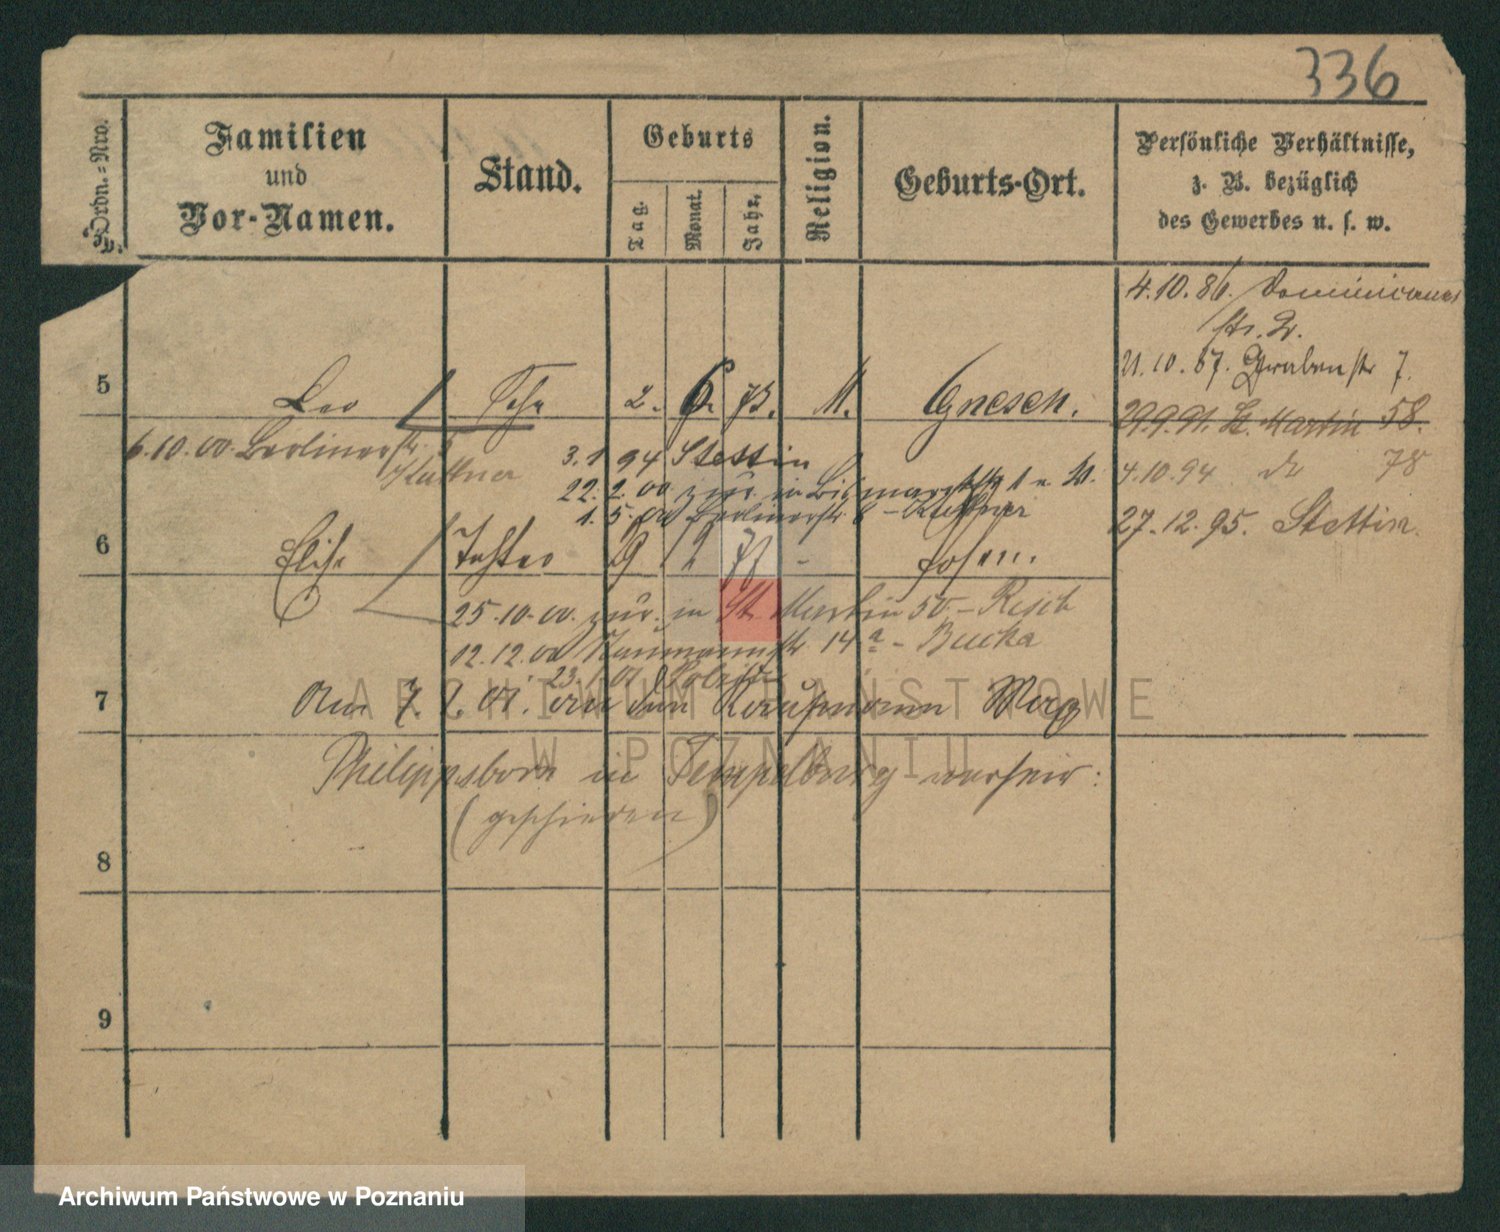 336
Ordn.=Nro.
Familien
und
Vor-Namen.
Stand.
Geburts
Tag.
Monat.
Jahr.
Religion.
Geburts-Ort.
Persönliche Verhältnisse,
z. B. bezüglich
des Gewerbes u. s. w.
4.10.86. Dominicaner
str. 2.
21.10.87. Grabenstr 7.
5 Leo 2. 6. 73. M. Gnesen.
29.9.91. St. Martin 58.
6.10.00. Berlinerstr.
Kuttner
3.1 94 Stettin
4.10.94 do 78
22.2.00 zur. in Bismarckstr 1
1.5.00 Berlinerstr 6 - Kuttner
27.12.95. Stettin.
6 Elise Tochter 9 12 Posen.
25.10.00. zur. in St. Martin 50 -
12.12.00 Naumannstr 14a -
23.1.01
7 Am 7.1.01. an den Kaufmann
Philippsborn in Tempelburg verheir:
(geschieden)
8
9
ARCHIWUM PAŃSTWOWE
W POZNANIU
Archiwum Państwowe w Poznaniu